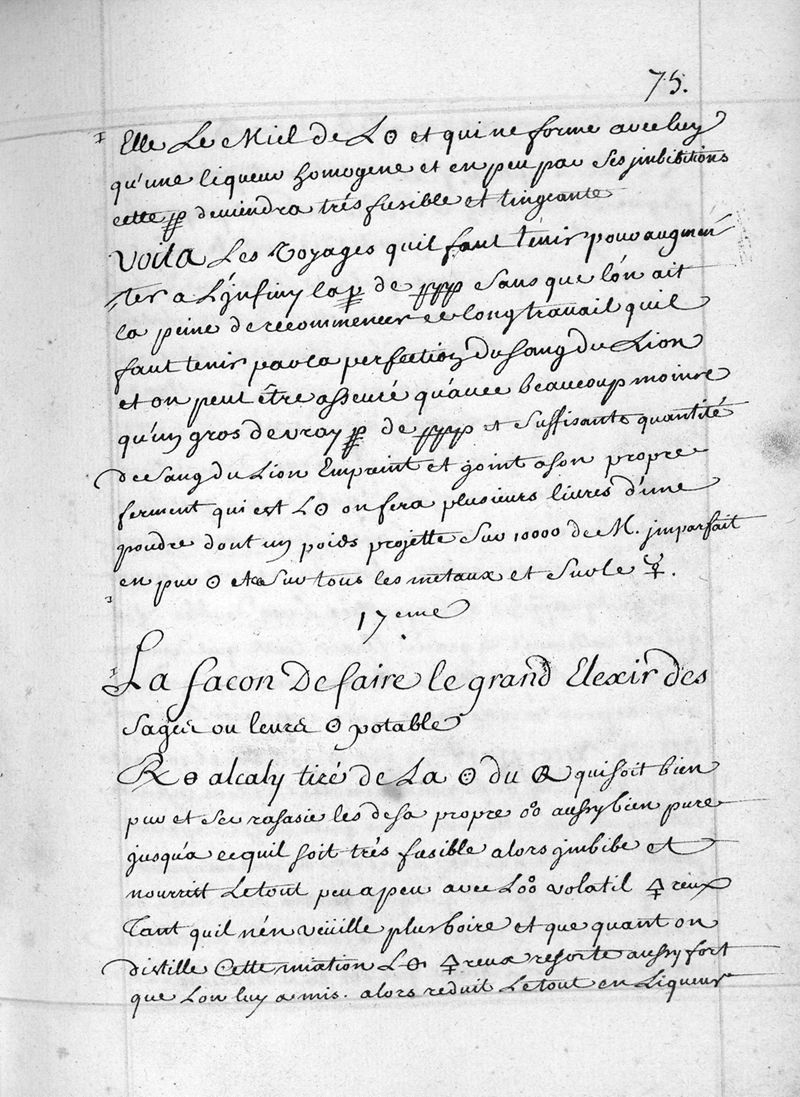 75.
Elle Le Miel de L☉ et qui ne forme avec luy
qu'une liqueur homogene et en peu par ses jmbibitions
cette deviendra trés fusible et tingeante
Voila Les Voyages quil faut tenir pour augmen
ter a L'ynfiny la de sans que lón ait
la peine de recommencer ce long travail quil
faut tenir par la perfection du sang du Lion
et on peut être asseuré qu'avec beaucoup moins
qu'un gros de vray de et suffisante quantité
de sang du Lion Empreint et joint a son propre
ferment qui est L☉ on fera plusieurs livres d'une
poudre dont un poids projette sur 10000 de M. jmparfait
en pur ☉ et sur tous les metaux et sur le ☿.
17eme
La facon De faire le grand Elexir des
sages ou leurs ☉ potable
R ⊖ alcaly tiré de La du qui soit bien
pur et sec rasasie les de sa propre aussy bien pure
jusqu'a ce quil soit trés fusible alors jmbibe et
nourrit Le tout peu a peu avec volatil 🜍 reux
Tant quil nén veüille plus boire et que quant on
distille Cette L 🜍 reux resorte aussy fort
que Lon luy a mis. alors reduit Le tout en Liqueur